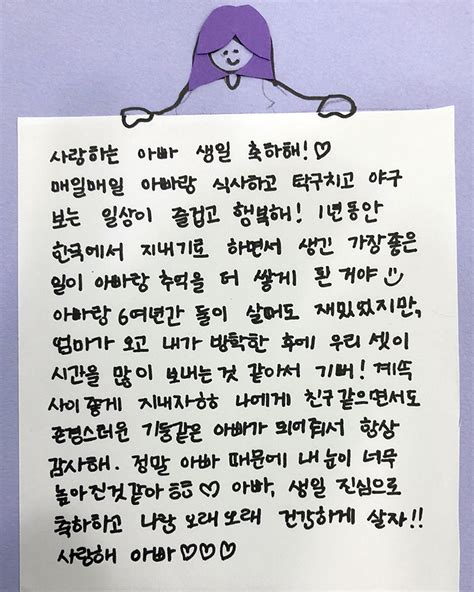 사랑하는 아빠 생일 축하해! ♡
매일매일 아빠랑 식사하고 탁구치고 야구
보는 일상이 즐겁고 행복해! 1년동안
한국에서 지내기로 하면서 생긴 가장좋은
일이 아빠랑 추억을 더 쌓게 된 거야
아빠랑 6여년간 둘이 살때도 재밌었지만,
엄마가 오고 내가 방학한 후에 우리 셋이
시간을 많이 보내는것 같아서 기뻐! 계속
사이좋게 지내자ㅎㅎ 나에게 친구같으면서도
존경스러운 기둥같은 아빠가 되어줘서 항상
감사해. 정말 아빠 때문에 내 눈이 너무
높아진것같아 ♡ 아빠, 생일 진심으로
축하하고 나랑 오래오래 건강하게 살자!!
사랑해 아빠♡♡♡